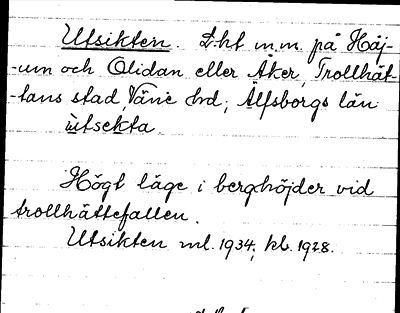 Utsikten. L.ht m.m. på Håj-
-um och Olidan eller Åker, Trollhät-
-tans stad, Väne hd, Älfsborgs län
ùtsekta
Högt läge i berghöjder vid
trollhättefallen.
Utsikten ml. 1934; kb. 1928.